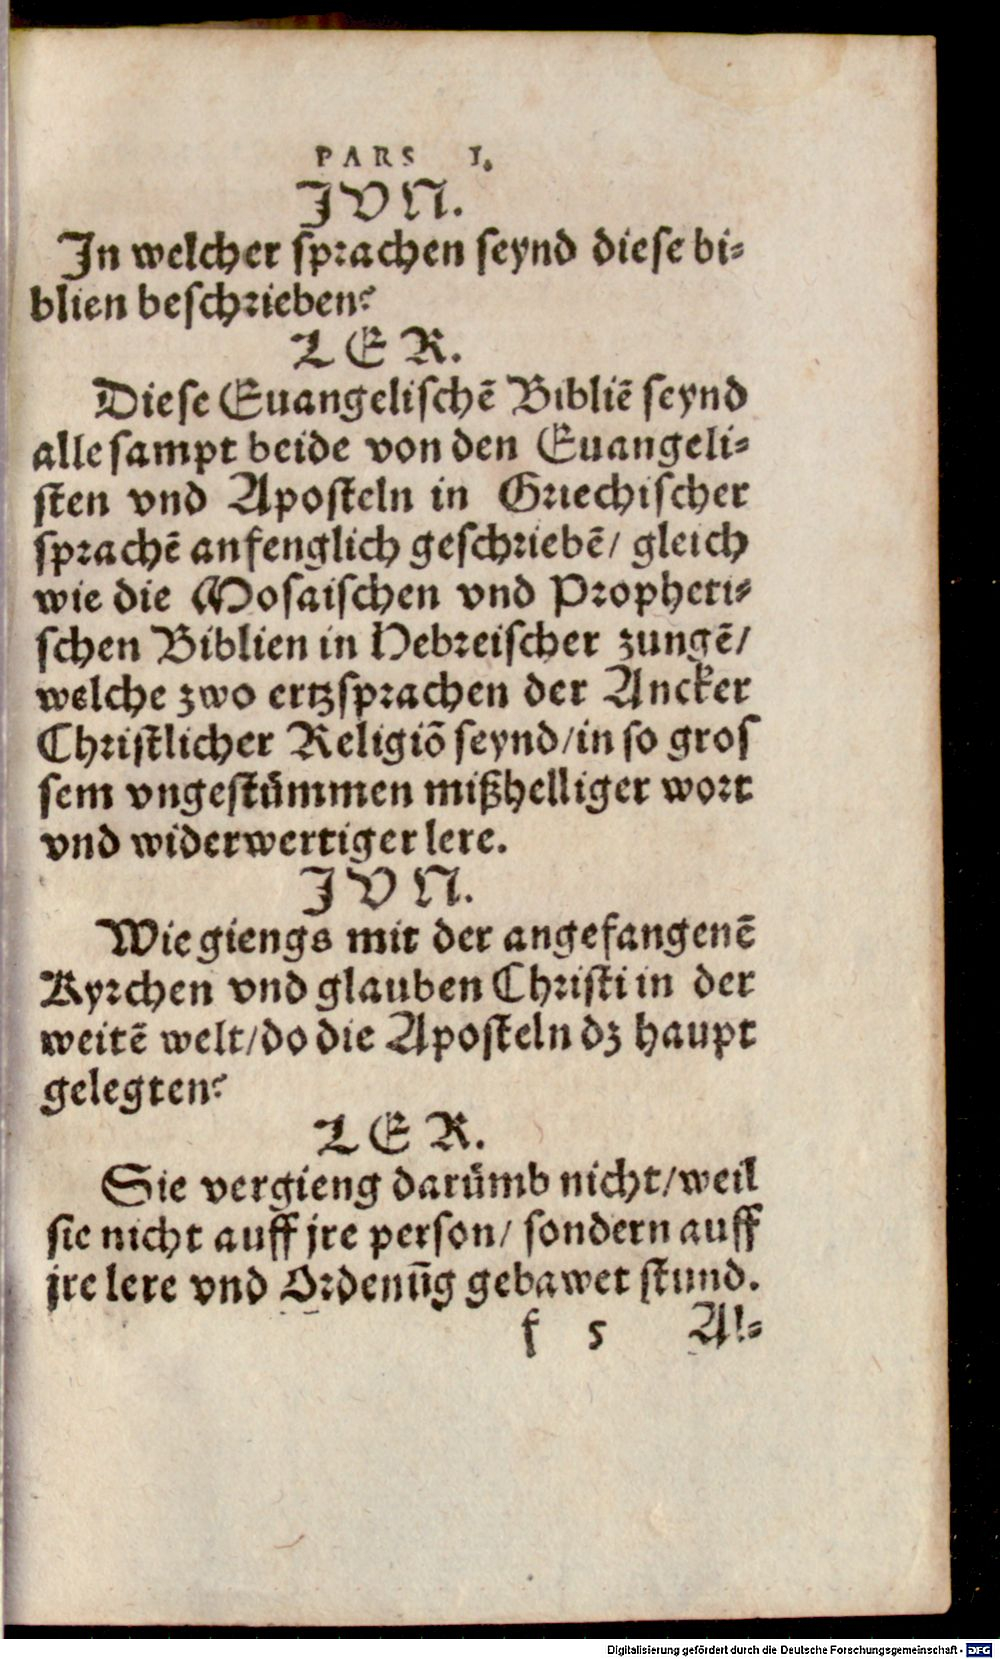 PARS I.
JVN.
In welcher sprachen seynd diese bi-
blien beschrieben?
LER.
Diese Euangelischē Bibliē seynd
alle sampt beide von den Euangeli-
sten vnd Aposteln in Griechischer
sprachē anfenglich geschriebē/ gleich
wie die Mosaischen vnd Propheti-
schen Biblien in Hebreischer zungē/
welche zwo ertzsprachen der Ancker
Christlicher Religiō seynd/in so gros
sem vngestümmen mißhelliger wort
vnd widerwertiger lere.
JVN.
Wie giengs mit der angefangenē
Kyrchen vnd glauben Christi in der
weitē welt/do die Aposteln dz haupt
gelegten?
LER.
Sie vergieng darümb nicht/weil
sie nicht auff jre person/ sondern auff
jre lere vnd Ordenūg gebawet stund.
f 5 Al-
Digitalisierung gefördert durch die Deutsche Forschungsgemeinschaft - DFG